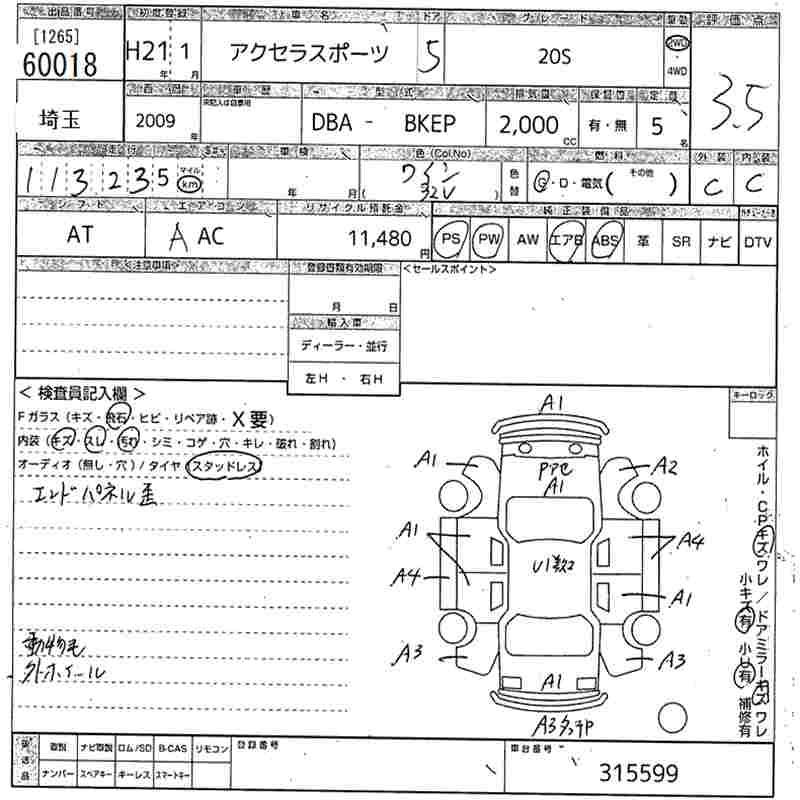 出品番号 初度登録 車名 ドア グレード 車歴 評価点
[1265]
60018 H21年 1月 アクセラスポーツ 5 20S 2WD 4WD 3.5
型式 排気量 保証書 定員
埼玉 2009年 DBA - BKEP 2,000CC 有・無 5名
走行 車検 色(Col.No) 燃料 外装 内装
113235 マイル km 年 月 ワイン 32V 色替 G・D・電気( その他 ) C C
シフト エアコン リサイクル預託金 純正装備品
AT A AC 11,480円 PS PW AW エアB ABS 革 SR ナビ DTV
注意事項 登録書類有効期限 <セールスポイント>
月 日
輸入車
ディーラー・並行
左H ・ 右H
<検査員記入欄> キーロック
Fガラス (キズ・飛石・ヒビ・リペア跡・X要)
内装 (キズ・スレ・汚れ・シミ・コゲ・穴・キレ・破れ・割れ)
オーディオ (無し・穴) / タイヤ (スタッドレス)
エンドパネル歪
動物毛
外ホイール
A1
A1 PPC A2
A1
A1 A4
U1数2
A4 A1
A3 A3
A1
A3タッチP
ホイル・CPキズワレ / ドアミラーキズワレ
小キズ有 小U有 補修有
取説 ナビ取説 ロム/SD B-CAS リモコン 登録番号 車台番号
ナンバー スペアキー キーレス スマートキー 315599